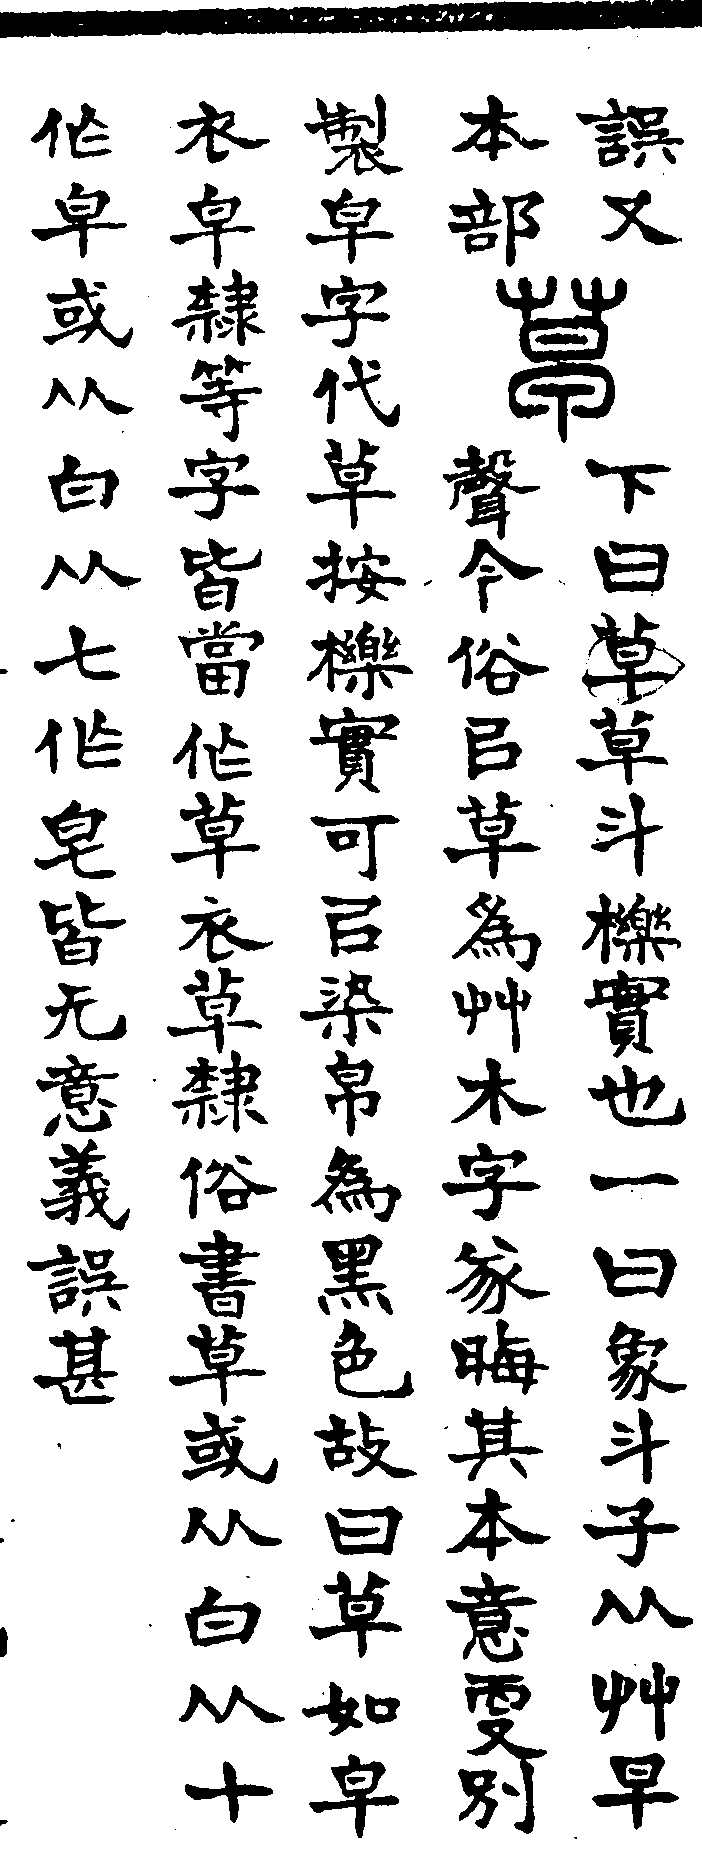 誤又
本部
草
下曰草草斗櫟實也一曰象斗子从艸早
聲今俗㠯草為艸木字㒸晦其本意更別
製皁字代草按櫟實可㠯染帛為黑色故曰草如皁
衣皁隸等字皆當作草衣草隸俗書草或从白从十
作皁或从白从七作皂皆无意義誤甚